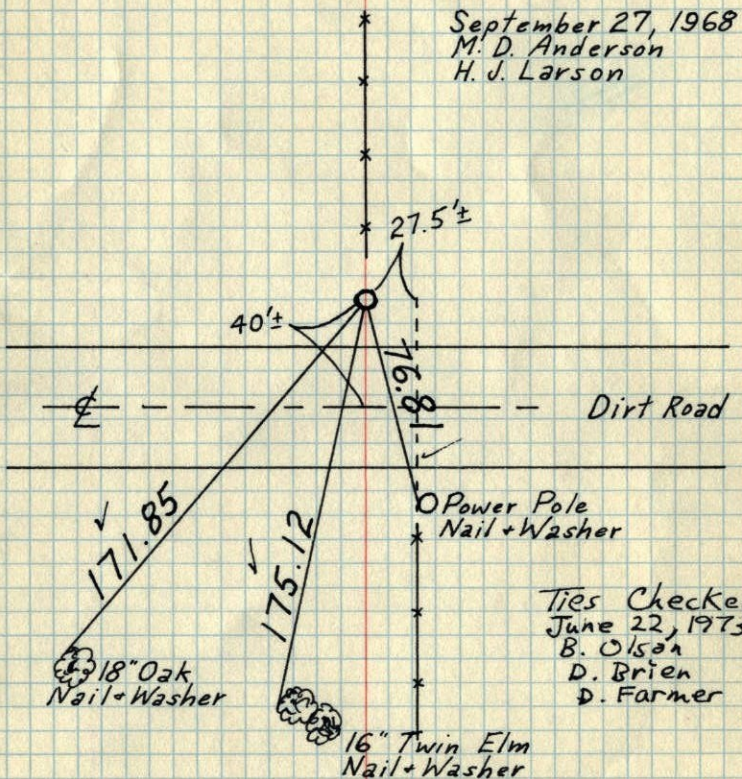 September 27, 1968
M. D. Anderson
H. J. Larson
27.5'±
40'±
76.81
℄
Dirt Road
171.85
175.12
Power Pole
Nail + Washer
Ties Checke
June 22,
B. Olson
D. Brien
D. Farmer
18" Oak
Nail + Washer
16" Twin Elm
Nail + Washer